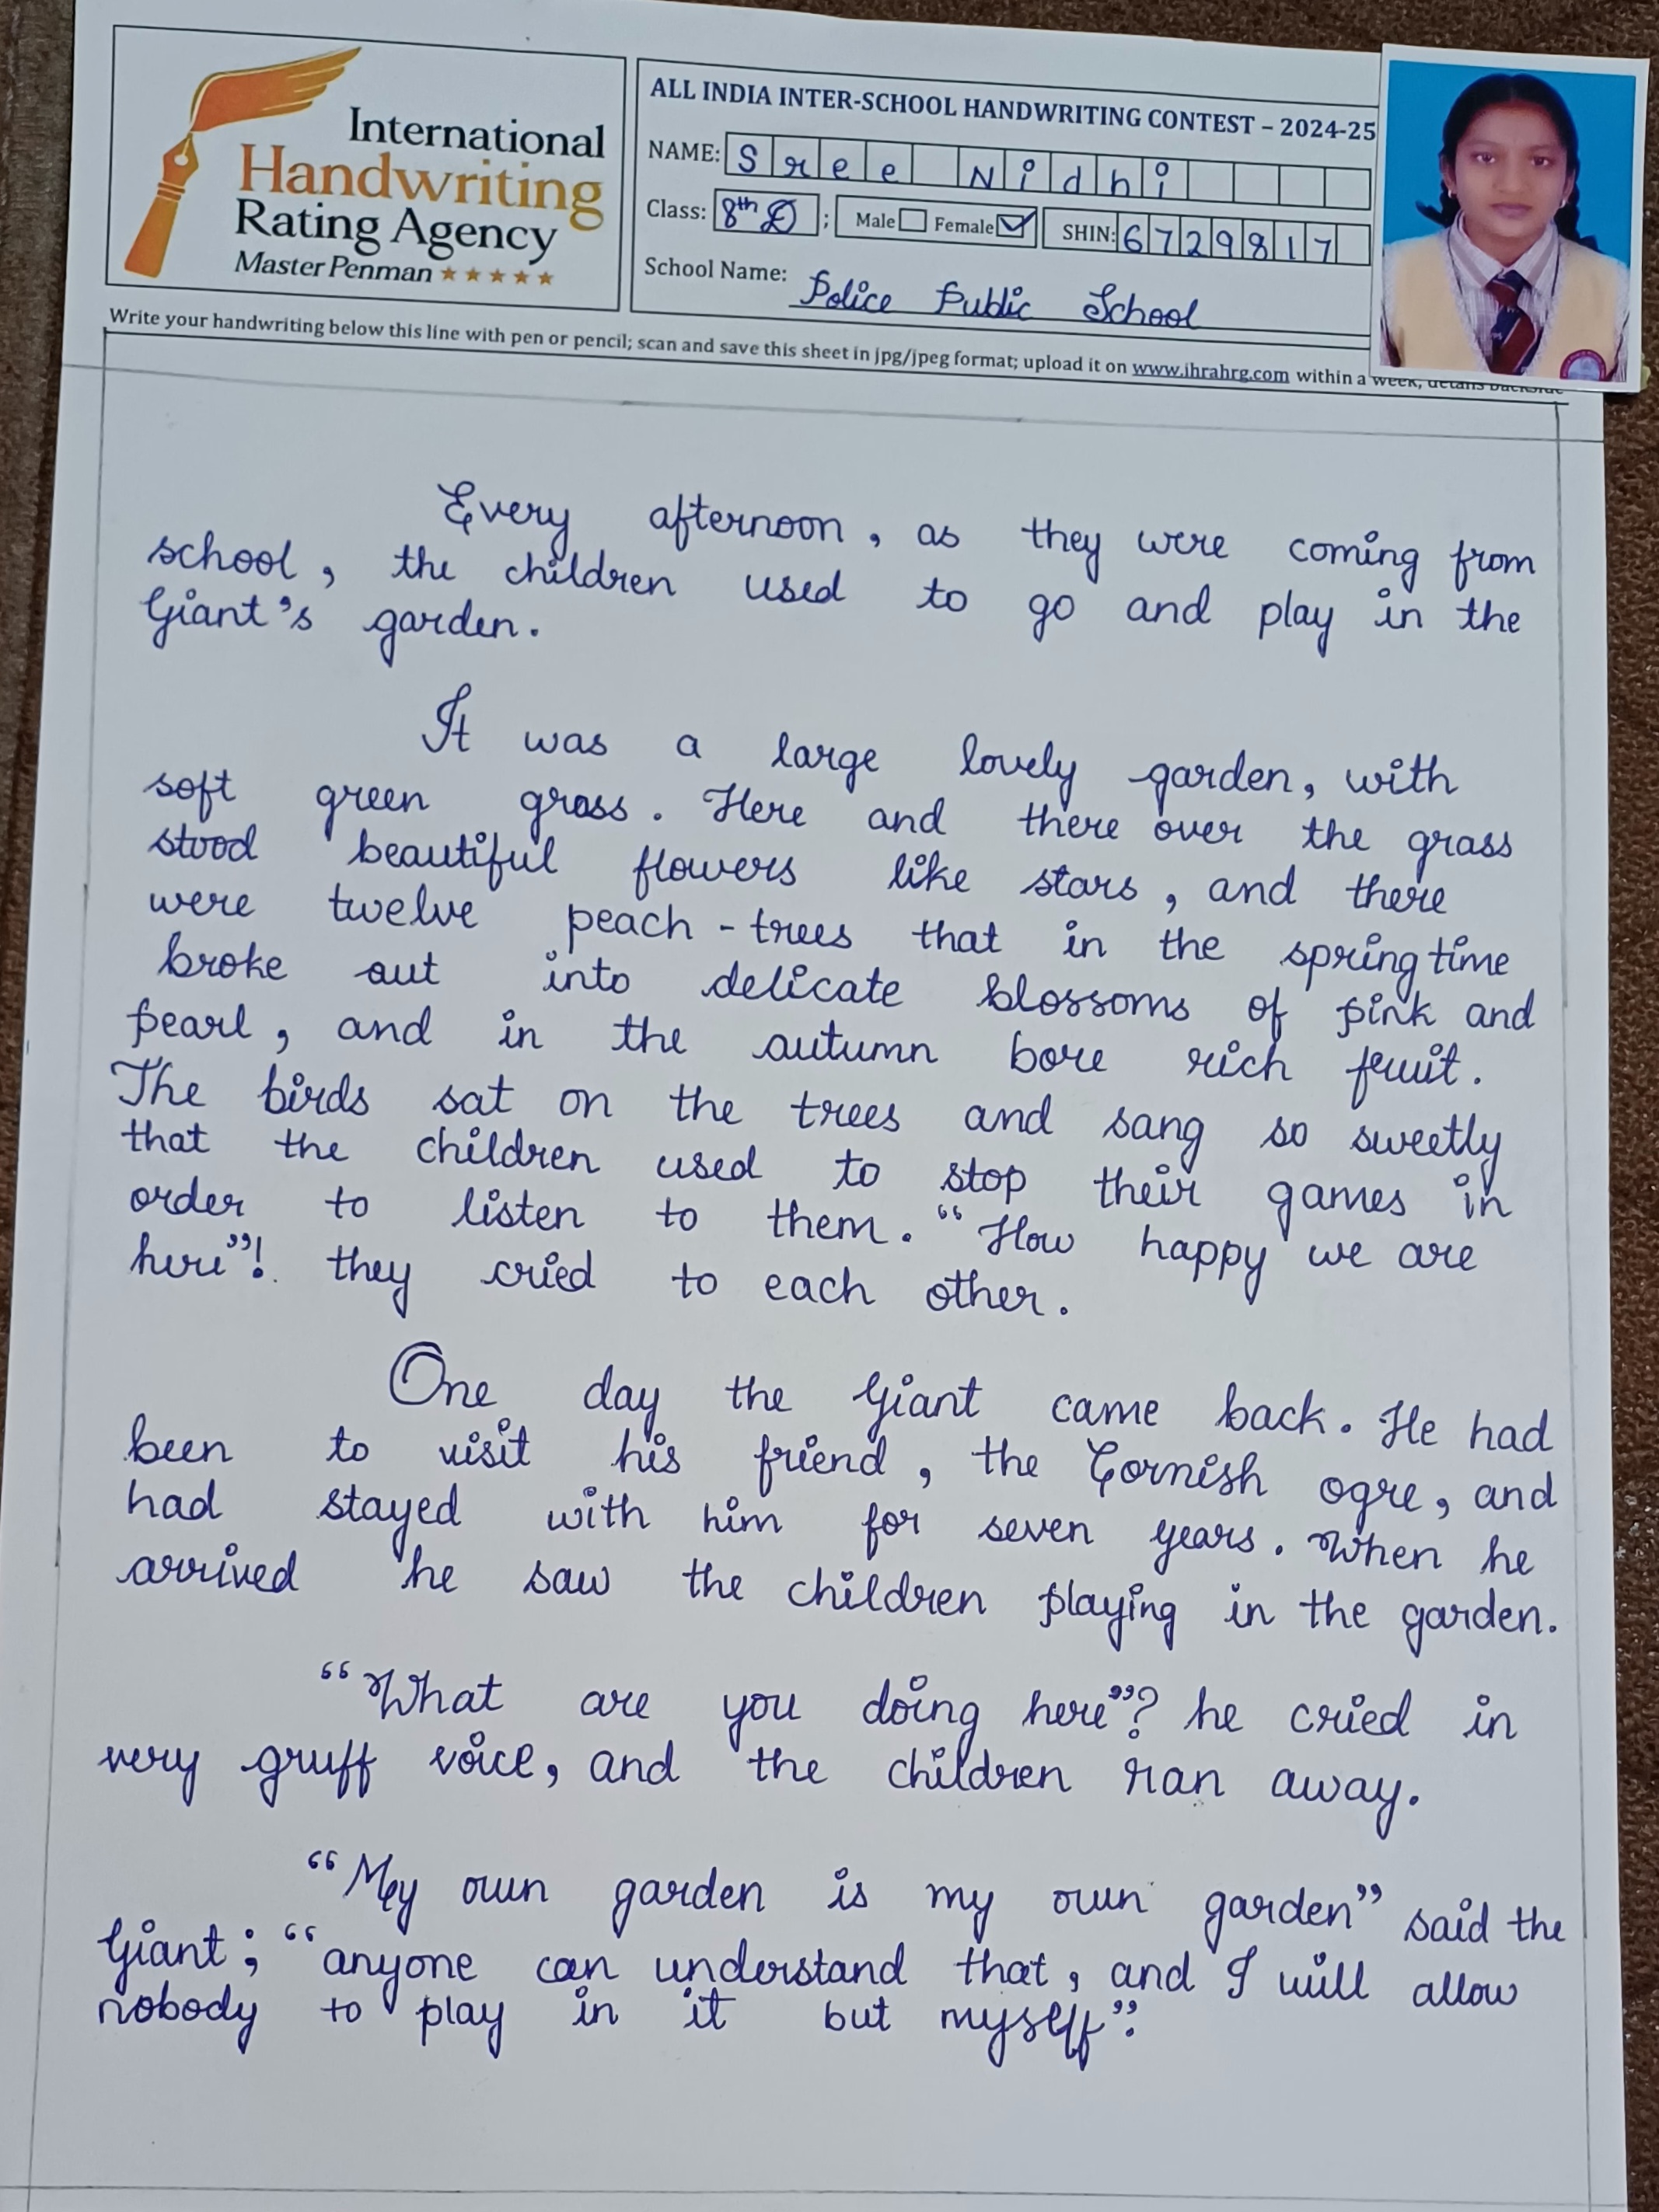 International
Handwriting
Rating Agency
Master Penman ★★★★★
ALL INDIA INTER-SCHOOL HANDWRITING CONTEST – 2024-25
NAME: Sree Nidhi
Class: 8th D ; Male Female SHIN: 6729817
School Name: Police Public School
Write your handwriting below this line with pen or pencil; scan and save this sheet in jpg/jpeg format; upload it on www.ihrahrg.com within a week, details backside
Every afternoon, as they were coming from
school, the children used to go and play in the
Giant's garden.
It was a large lovely garden, with
soft green grass. Here and there over the grass
stood beautiful flowers like stars, and there
were twelve peach-trees that in the spring time
broke out into delicate blossoms of pink and
pearl, and in the autumn bore rich fruit.
The birds sat on the trees and sang so sweetly
that the children used to stop their games in
order to listen to them. “How happy we are
here”! they cried to each other.
One day the Giant came back. He had
been to visit his friend, the Cornish ogre, and
had stayed with him for seven years. When he
arrived he saw the children playing in the garden.
“What are you doing here”? he cried in
very gruff voice, and the children ran away.
“My own garden is my own garden” said the
Giant; “anyone can understand that, and I will allow
nobody to play in it but myself”.